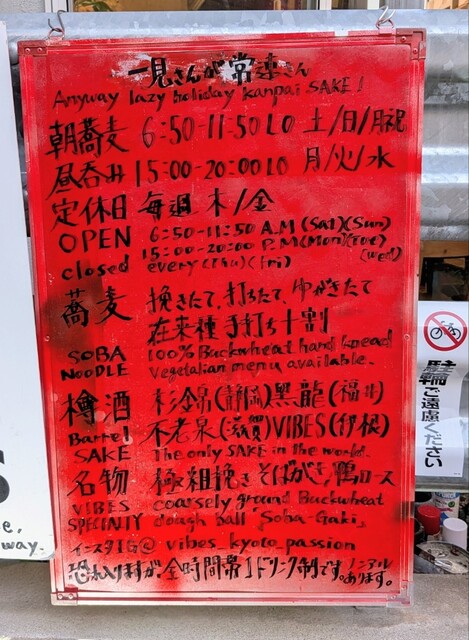 一見さんが常連さん
Anyway lazy holiday kanpai SAKE!
朝蕎麦 6:50-11:50LO 土/日/月祝
昼呑み 15:00-20:00LO 月/火/水
定休日 毎週 木/金
OPEN 6:50-11:50 A.M (Sat)(Sun)
15:00-20:00 P.M (Mon)(Tue)
(wed)
closed every (Thu) (fri)
蕎麦 挽きたて、打ちたて、ゆがきたて
在来種手打ち十割
SOBA 100% Buckwheat hand knead
NOODLE vegetalian menu available.
樽酒 杉錦(静岡)黒龍(福井)
不老泉(滋賀)VIBES(伊根)
Barrel
SAKE The only SAKE in the world.
名物 極粗挽きそばがき、鴨ロース
VIBES coarsely ground Buckwheat
SPECIALTY dough ball 「Soba-Gaki」
インスタIG@ vibes_kyoto_passion
恐れ入りますが、全時間常1ドリンク制です。ノンアルあります。
駐輪ご遠慮ください
e,
way.